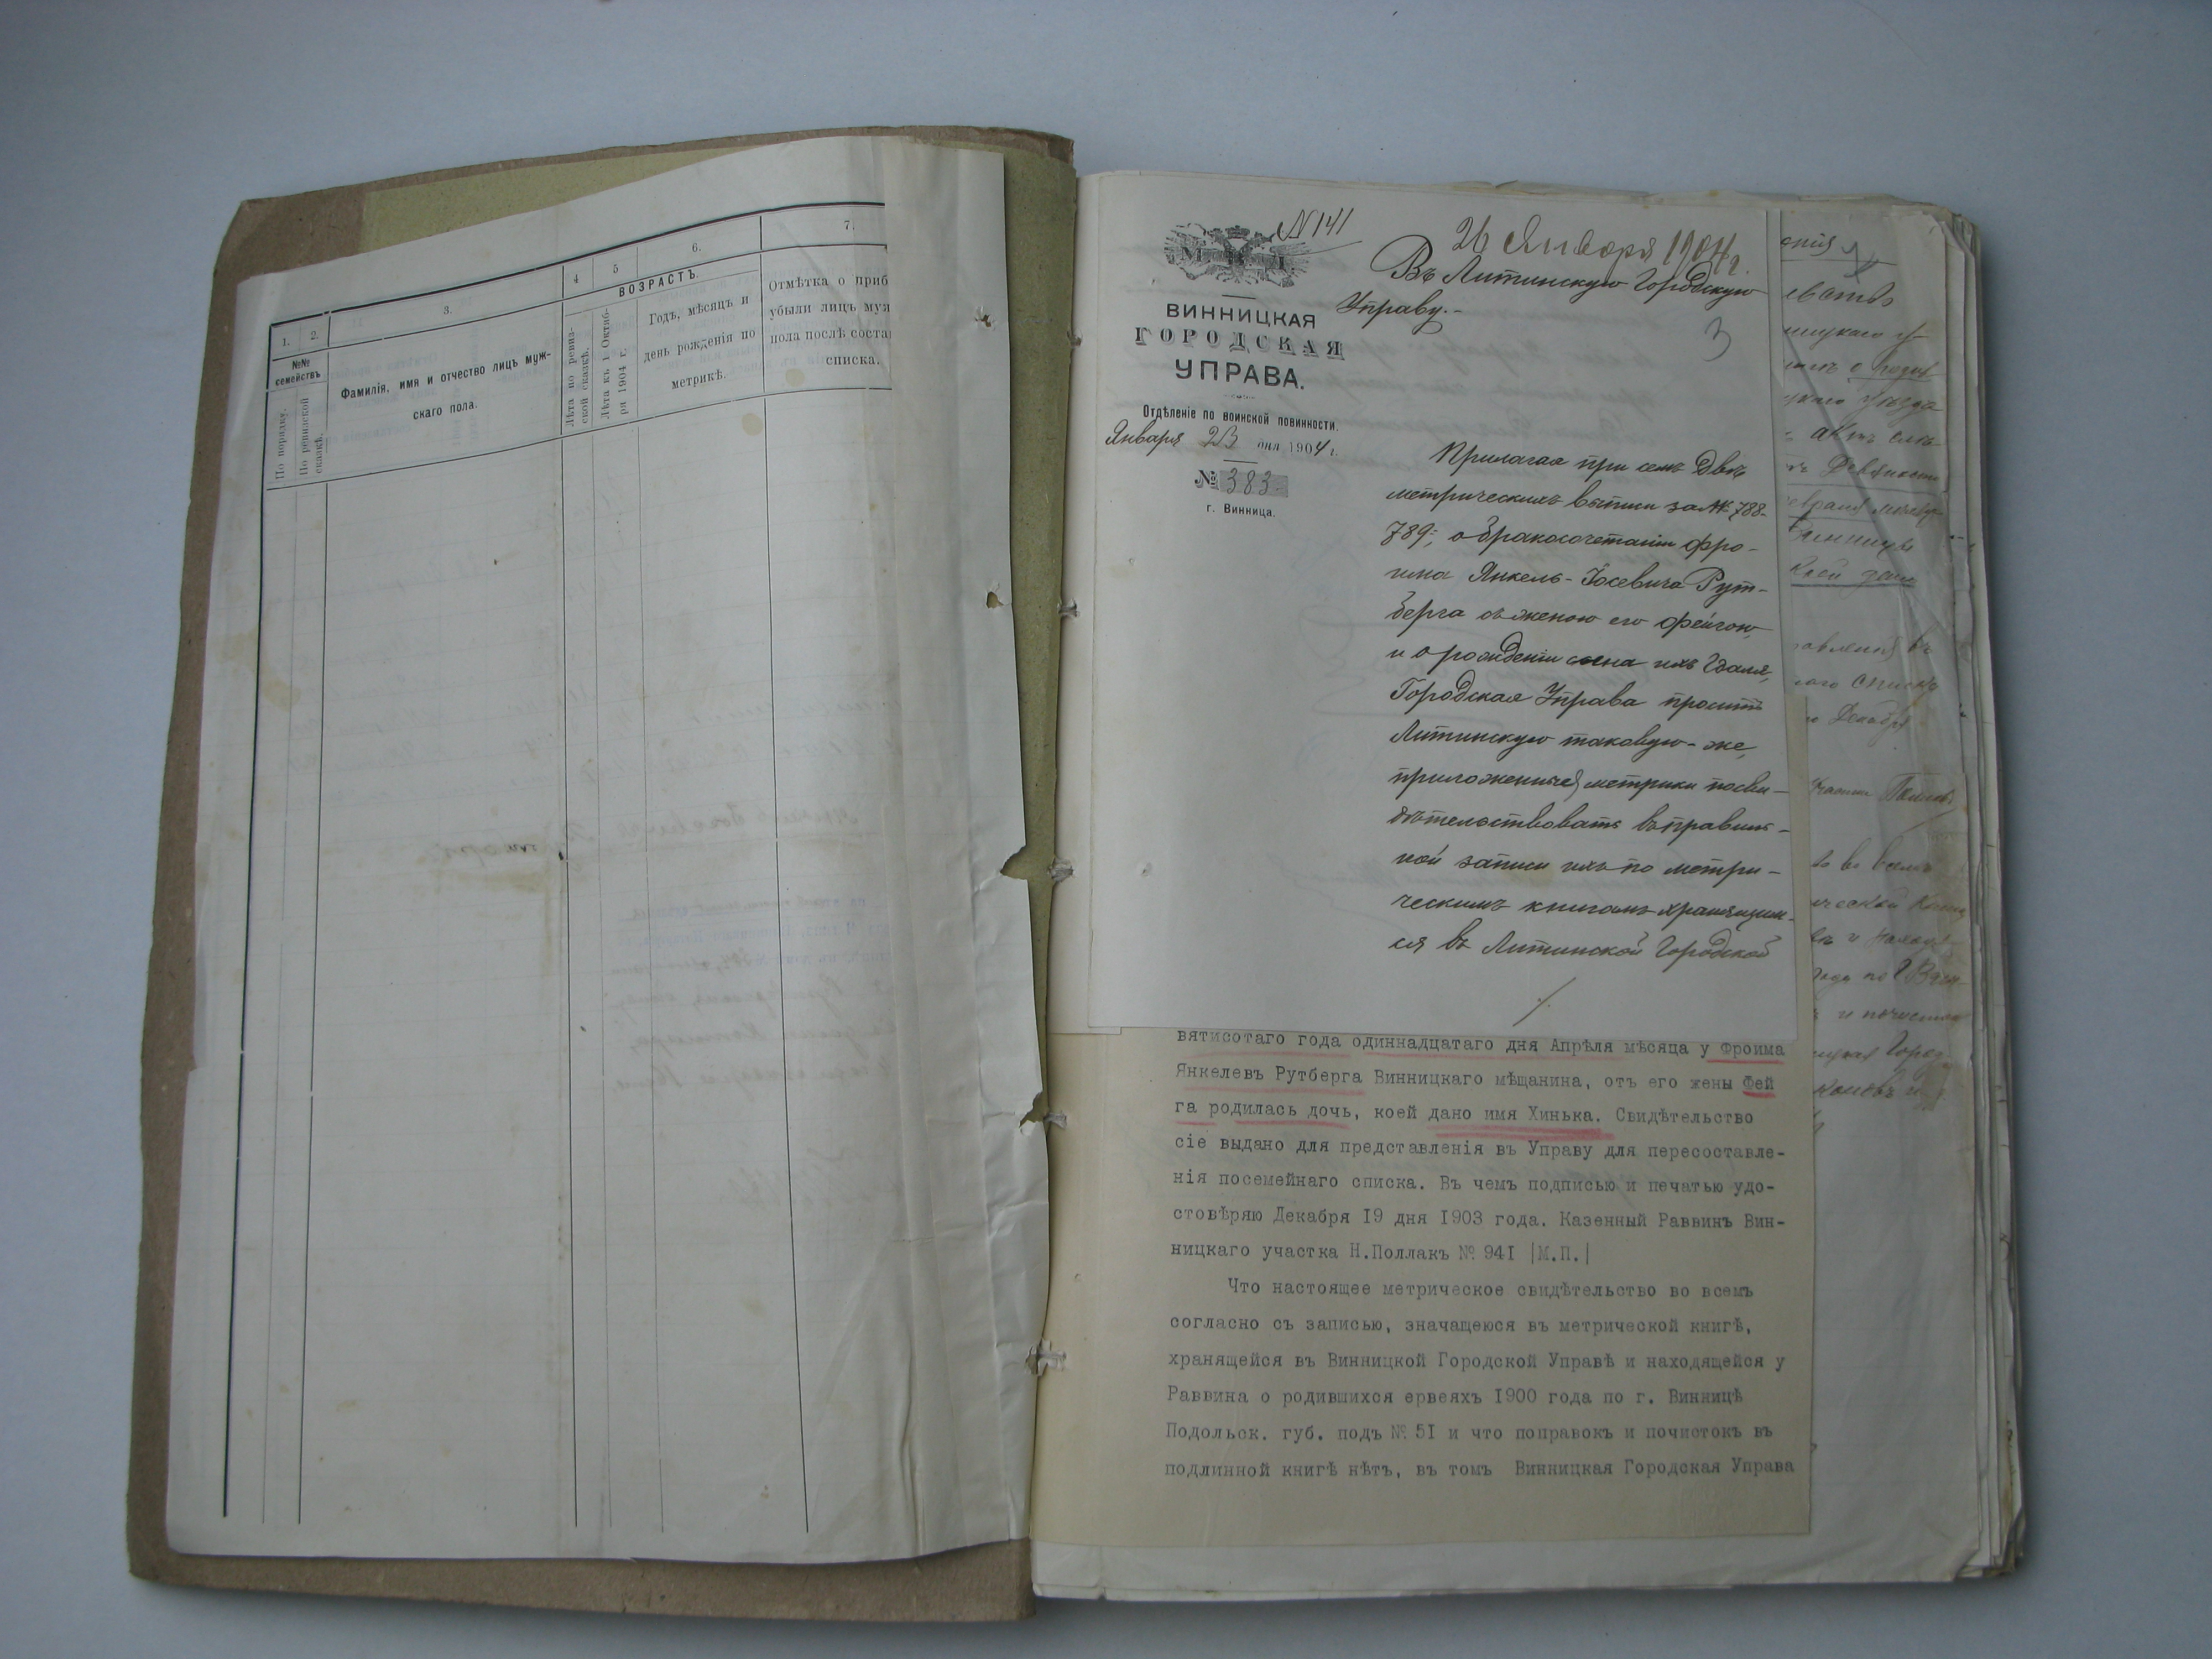 1.
2.
3.
4
5
6.
7.
№№ семействъ
По порядку.
По ревизской сказкѣ.
Фамилія, имя и отчество лицъ муж-
скаго пола.
ВОЗРАСТЪ.
Лѣта по ревиз-
ской сказкѣ.
Лѣта къ 1 Октяб-
ря 1904 г.
Годъ, мѣсяцъ и
день рожденія по
метрикѣ.
Отмѣтка о приб
убыли лицъ муж
пола послѣ соста
списка.
N 141
26 Января 1904 г.
Въ Литинскую Городскую
Управу.-
3
М. В. Д.
ВИННИЦКАЯ
ГОРОДСКАЯ
УПРАВА.
Отдѣленіе по воинской повинности.
Января 23 дня 1904 г.
№ 383
г. Винница.
Прилагая при семъ двѣ
метрическихъ выписи за № 788-
789, о бракосочетаніи Фро-
има Янкель-Іосевича Рут-
берга съ женою его Фейгою,
и о рожденіи сына ихъ
Городская Управа проситъ
Литинскую таковую-же,
приложенныя метрики посви-
дѣтельствовать въ правиль-
ной записи ихъ по метри-
ческимъ книгамъ хранящим-
ся въ Литинской Городской
./.
вятисотаго года одиннадцатаго дня Апрѣля мѣсяца у Фроима
Янкелевъ Рутберга Винницкаго мѣщанина, отъ его жены Фей
га родилась дочь, коей дано имя Хинька. Свидѣтельство
сіе выдано для представленія въ Управу для пересоставле-
нія посемейнаго списка. Въ чемъ подписью и печатью удо-
стовѣряю Декабря 19 дня 1903 года. Казенный Раввинъ Вин-
ницкаго участка Н.Поллакъ № 941 |М.П.|
Что настоящее метрическое свидѣтельство во всемъ
согласно съ записью, значащеюся въ метрической книгѣ,
хранящейся въ Винницкой Городской Управѣ и находящейся у
Раввина о родившихся ервеяхъ 1900 года по г. Винницѣ
Подольск. губ. подъ № 51 и что поправокъ и почистокъ въ
подлинной книгѣ нѣтъ, въ томъ Винницкая Городская Управа